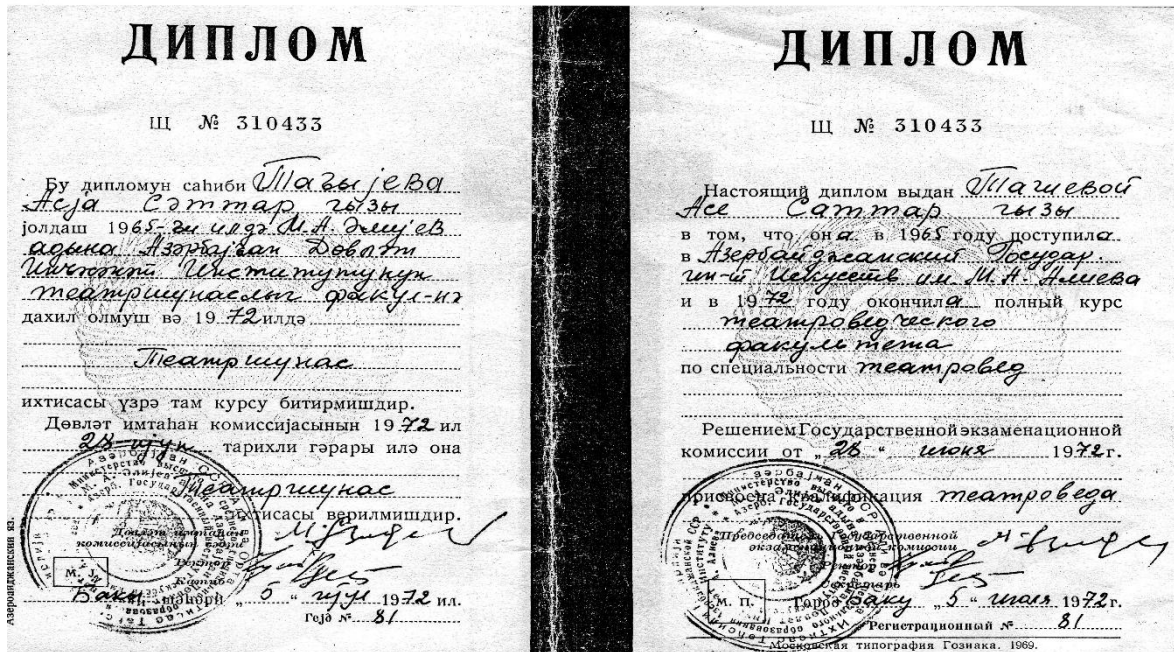 ДИПЛОМ
Щ № 310433
Бу дипломун саһиби Тағыјева
Асја Сәттар гызы
јолдаш 1965-чи илдә М.А. Әлијев
адына Азәрбајҹан Дөвләт
Инҹәсәнәт Институтунун
театршунаслыг факүл-нә
дахил олмуш вә 1972 илдә
Театршунас
ихтисасы үзрә там курсу битирмишдир.
Дөвләт имтаһан комиссијасынын 1972 ил
28 ијун тарихли гәрары илә она
Театршунас
ихтисасы верилмишдир.
Дөвләт имтаһан
комиссијасынын сәдри
Ректор
Катиб
М.
Бакы шәһәри „5“ ијул 1972 ил.
Гејд № 81
Азербайджанский яз.
ДИПЛОМ
Щ № 310433
Настоящий диплом выдан Тагиевой
Асе Саттар гызы
в том, что она в 1965 году поступила
в Азербайджанский Государ.
ин-т Искусств им. М.А. Алиева
и в 1972 году окончила полный курс
театроведческого
факультета
по специальности театровед
Решением Государственной экзаменационной
комиссии от „28“ июня 1972 г.
присвоена квалификация театроведа
Председатель Государственной
экзаменационной комиссии
Ректор
Секретарь
М. П. Город Баку „5“ июля 1972 г.
Регистрационный № 81
Московская типография Гознака. 1969.